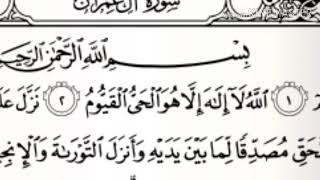 سورة آل عمران
بِسْمِ ٱللَّهِ ٱلرَّحْمَٰنِ ٱلرَّحِيمِ
١ ٱللَّهُ لَآ إِلَٰهَ إِلَّا هُوَ ٱلْحَىُّ ٱلْقَيُّومُ ٢ نَزَّلَ عَلَ
لْحَقِّ مُصَدِّقًا لِّمَا بَيْنَ يَدَيْهِ وَأَنزَلَ ٱلتَّوْرَىٰةَ وَٱلْإِنجِ